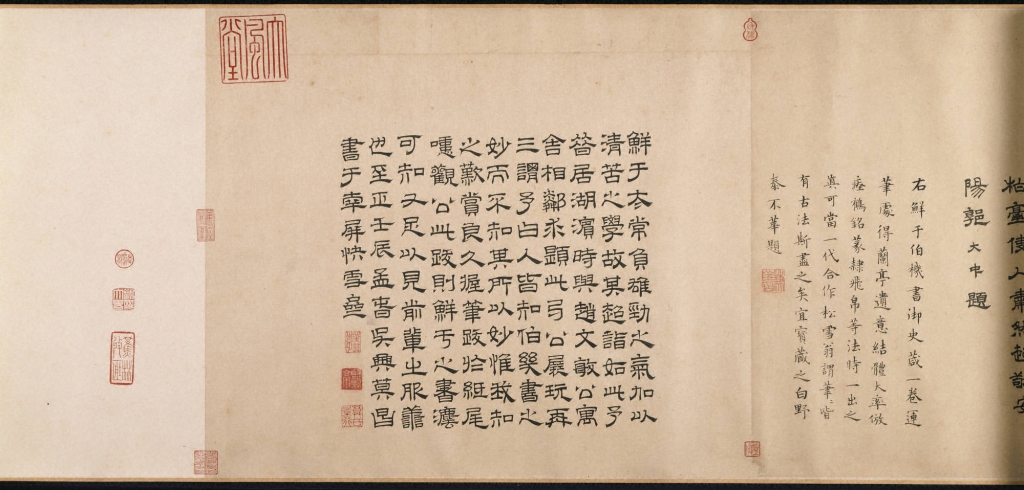 使人肅然起敬安
陽郭大中題
右鮮于伯機書御史箴一卷運
筆處得蘭亭遺意結體大率倣
瘞鶴銘篆隸飛帛等法時一出之
真可當一代合作松雪翁謂筆〻皆
有古法斯盡之矣宜寶藏之白野
泰不華題
鮮于太常負雄勁之氣加以
清苦之學故其超詣如此予
昔居湖濱時與趙文敏公寓
舍相鄰此公展玩再
三謂予曰人皆知伯幾書之
妙而不知其所以妙惟我知
之歎賞良久握筆跋於紙尾
噫觀公此跋則鮮于之書法
可知又足以見前輩之服善
也至正壬辰孟春吳興莫昌
書于屏快雪
大風堂